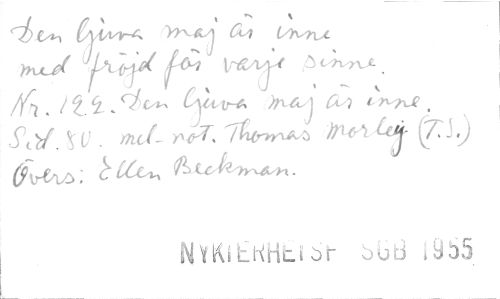 Den ljuva maj är inne
med fröjd för varje sinne.
Nr. 122. Den ljuva maj är inne.
Sid. 80. mel-not. Thomas Morley (T.S.)
Övers: Ellen Beckman.
NYKTERHETSF SGB 1955